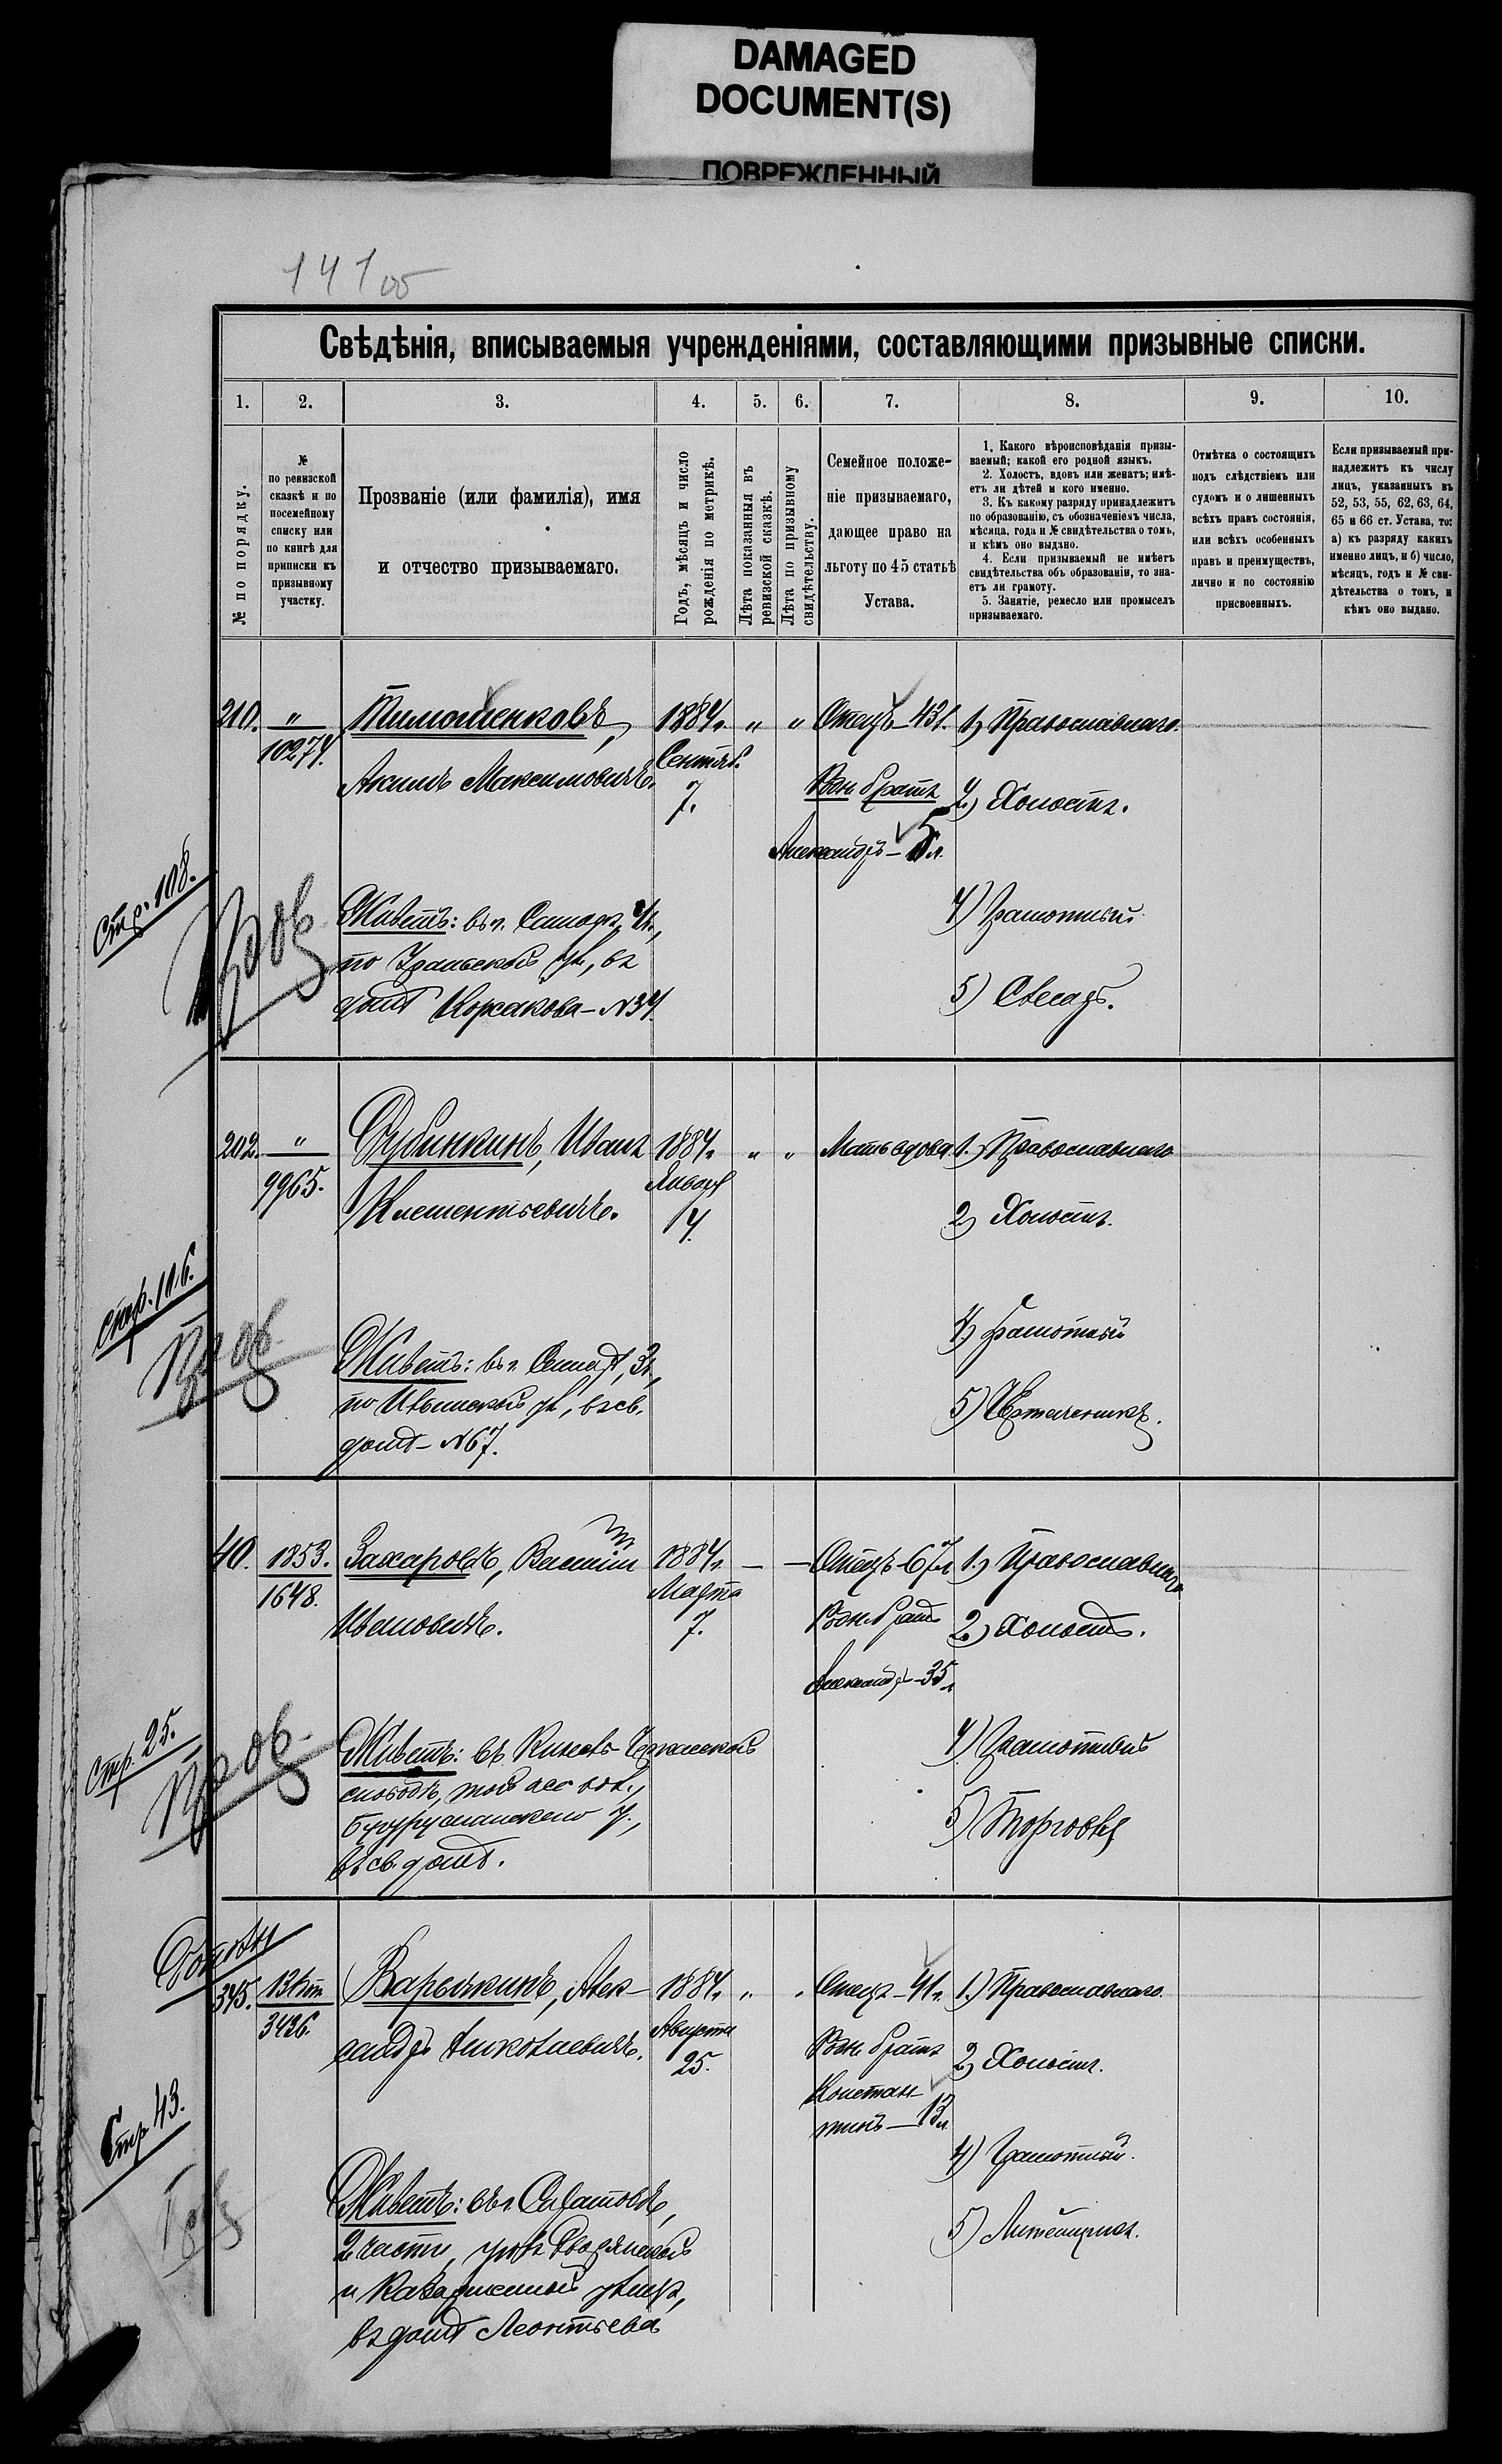 DAMAGED
DOCUMENT(S)
ПОВРЕЖДЕННЫЙ
141
Свѣдѣнія, вписываемыя учрежденіями, составляющими призывные списки.
1. 2. 3. 4. 5. 6. 7. 8. 9. 10.
№ по порядку.
№
по ревизской
сказкѣ и по
посемейному
списку или
по книгѣ для
приписки къ
призывному
участку.
Прозваніе (или фамилія), имя
и отчество призываемаго.
Годъ, мѣсяцъ и число
рожденія по метрикѣ.
Лѣта показанныя въ
ревизской сказкѣ.
Лѣта по призывному
свидѣтельству.
Семейное положе-
ніе призываемаго,
дающее право на
льготу по 45 статьѣ
Устава.
1. Какого вѣроисповѣданія призы-
ваемый; какой его родной языкъ.
2. Холостъ, вдовъ или женатъ; имѣ-
етъ ли дѣтей и кого именно.
3. Къ какому разряду принадлежитъ
по образованію, съ обозначеніемъ числа,
мѣсяца, года и № свидѣтельства о томъ,
и кѣмъ оно выдано.
4. Если призываемый не имѣетъ
свидѣтельства объ образованіи, то зна-
етъ ли грамоту.
5. Занятіе, ремесло или промыселъ
призываемаго.
Отмѣтка о состоящихъ
подъ слѣдствіемъ или
судомъ и о лишенныхъ
всѣхъ правъ состоянія,
или всѣхъ особенныхъ
правъ и преимуществъ,
лично и по состоянію
присвоенныхъ.
Если призываемый при-
надлежитъ къ числу
лицъ, указанныхъ въ
52, 53, 55, 62, 63, 64,
65 и 66 ст. Устава, то:
а) къ разряду какихъ
именно лицъ, и б) число,
мѣсяцъ, годъ и № сви-
дѣтельства о томъ, и
кѣмъ оно выдано.
210. " Тимошенковъ, 1884г. " " Отецъ—43г. 1) Православнаго.
10274.
Акимъ Максимовичъ.
Сентяб.
7.
Родн. братъ
Александръ— 5 л.
2) Холостъ.
Стр. 108.
Живетъ: въ г. Самарѣ,
по Уральской ул., въ
домѣ Корсакова—№34.
4) Грамотный
5) Слесарь.
202. " Дубинкинъ, Иванъ 1884г. " " Мать вдова 1.) Православнаго
9965.
Клементьевичъ.
Января
14.
2) Холостъ.
Стр. 106.
Живетъ: въ г. Самарѣ, 3ч.,
по Ильинской ул., въ св.
домѣ—№67.
4) Грамотный
5)
40. 1853. Захаровъ, Василій 1884г. — — Отецъ—67л 1.) Православнаго
1648.
Ивановичъ.
Марта
7.
Родн. братъ
Александръ—35л
2.) Холостъ.
Стр. 25.
Живетъ: въ Кинель-Черкасской
слободѣ, той же вол.,
Бугурусланскаго у.,
въ св. домѣ.
4) Грамотный
5) Торговецъ
345. Варычкинъ, Алек- 1884г. " " Отецъ—41г. 1.) Православнаго.
3426.
сандръ Николаевичъ.
Августа
25.
Родн. братъ
Констан-
тинъ—13л
2) Холостъ.
Стр. 43.
Живетъ: въ г. Саратовѣ,
2 части, уголъ Дворянской
и Казарменной улицъ,
въ домѣ Леонтьева
4) Грамотный.
5) Литейщикъ.